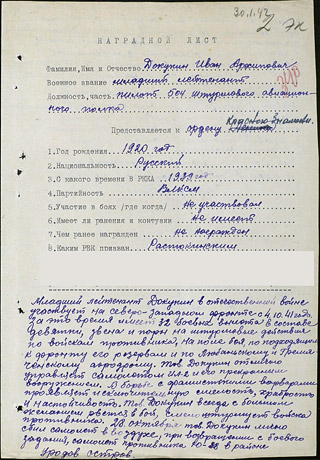 30.1.42
2
НАГРАДНОЙ ЛИСТ
Фамилия, Имя и Отчество Докукин Иван Архипович
Военное звание младший лейтенант
Должность, часть пилот 504 штурмового авиацион-
ного полка
Красного Знамени
Представляется к ордену Ленина
1. Год рождения 1920 год
2. Национальность Русский
3. С какого времени В РККА 1939 год
4. Партийность ВЛКСМ
5. Участие в боях /где когда/ не участвовал
6. Имеет ли ранения и контузии не имеет
7. Чем ранее награжден не награжден
8. Каким РВК призван Ростокинским
Младший лейтенант Докукин в отечественной войне
участвует на Северо-Западном фронте с 4.10.41 года.
За это время имеет 32 боевых вылета в составе
девятки, звена и пары на штурмовые действия
по войскам противника, на поле боя, по подходящим
к фронту его резервам и по Любанскому и
аэродрому. тов. Докукин отлично
управляет самолетом ил-2 и его прекрасным
вооружением. В борьбе с фашистскими варварами
проявляет исключительную смелость, храбрость
и настойчивость. Тов. Докукин всегда с большим
желанием рвется в бой. Смело штурмует войска
противника. 28 октября тов. Докукин лично
сбил самолет в воздухе, при возвращении с боевого
задания, самолет противника Ю-88 в районе
остров.